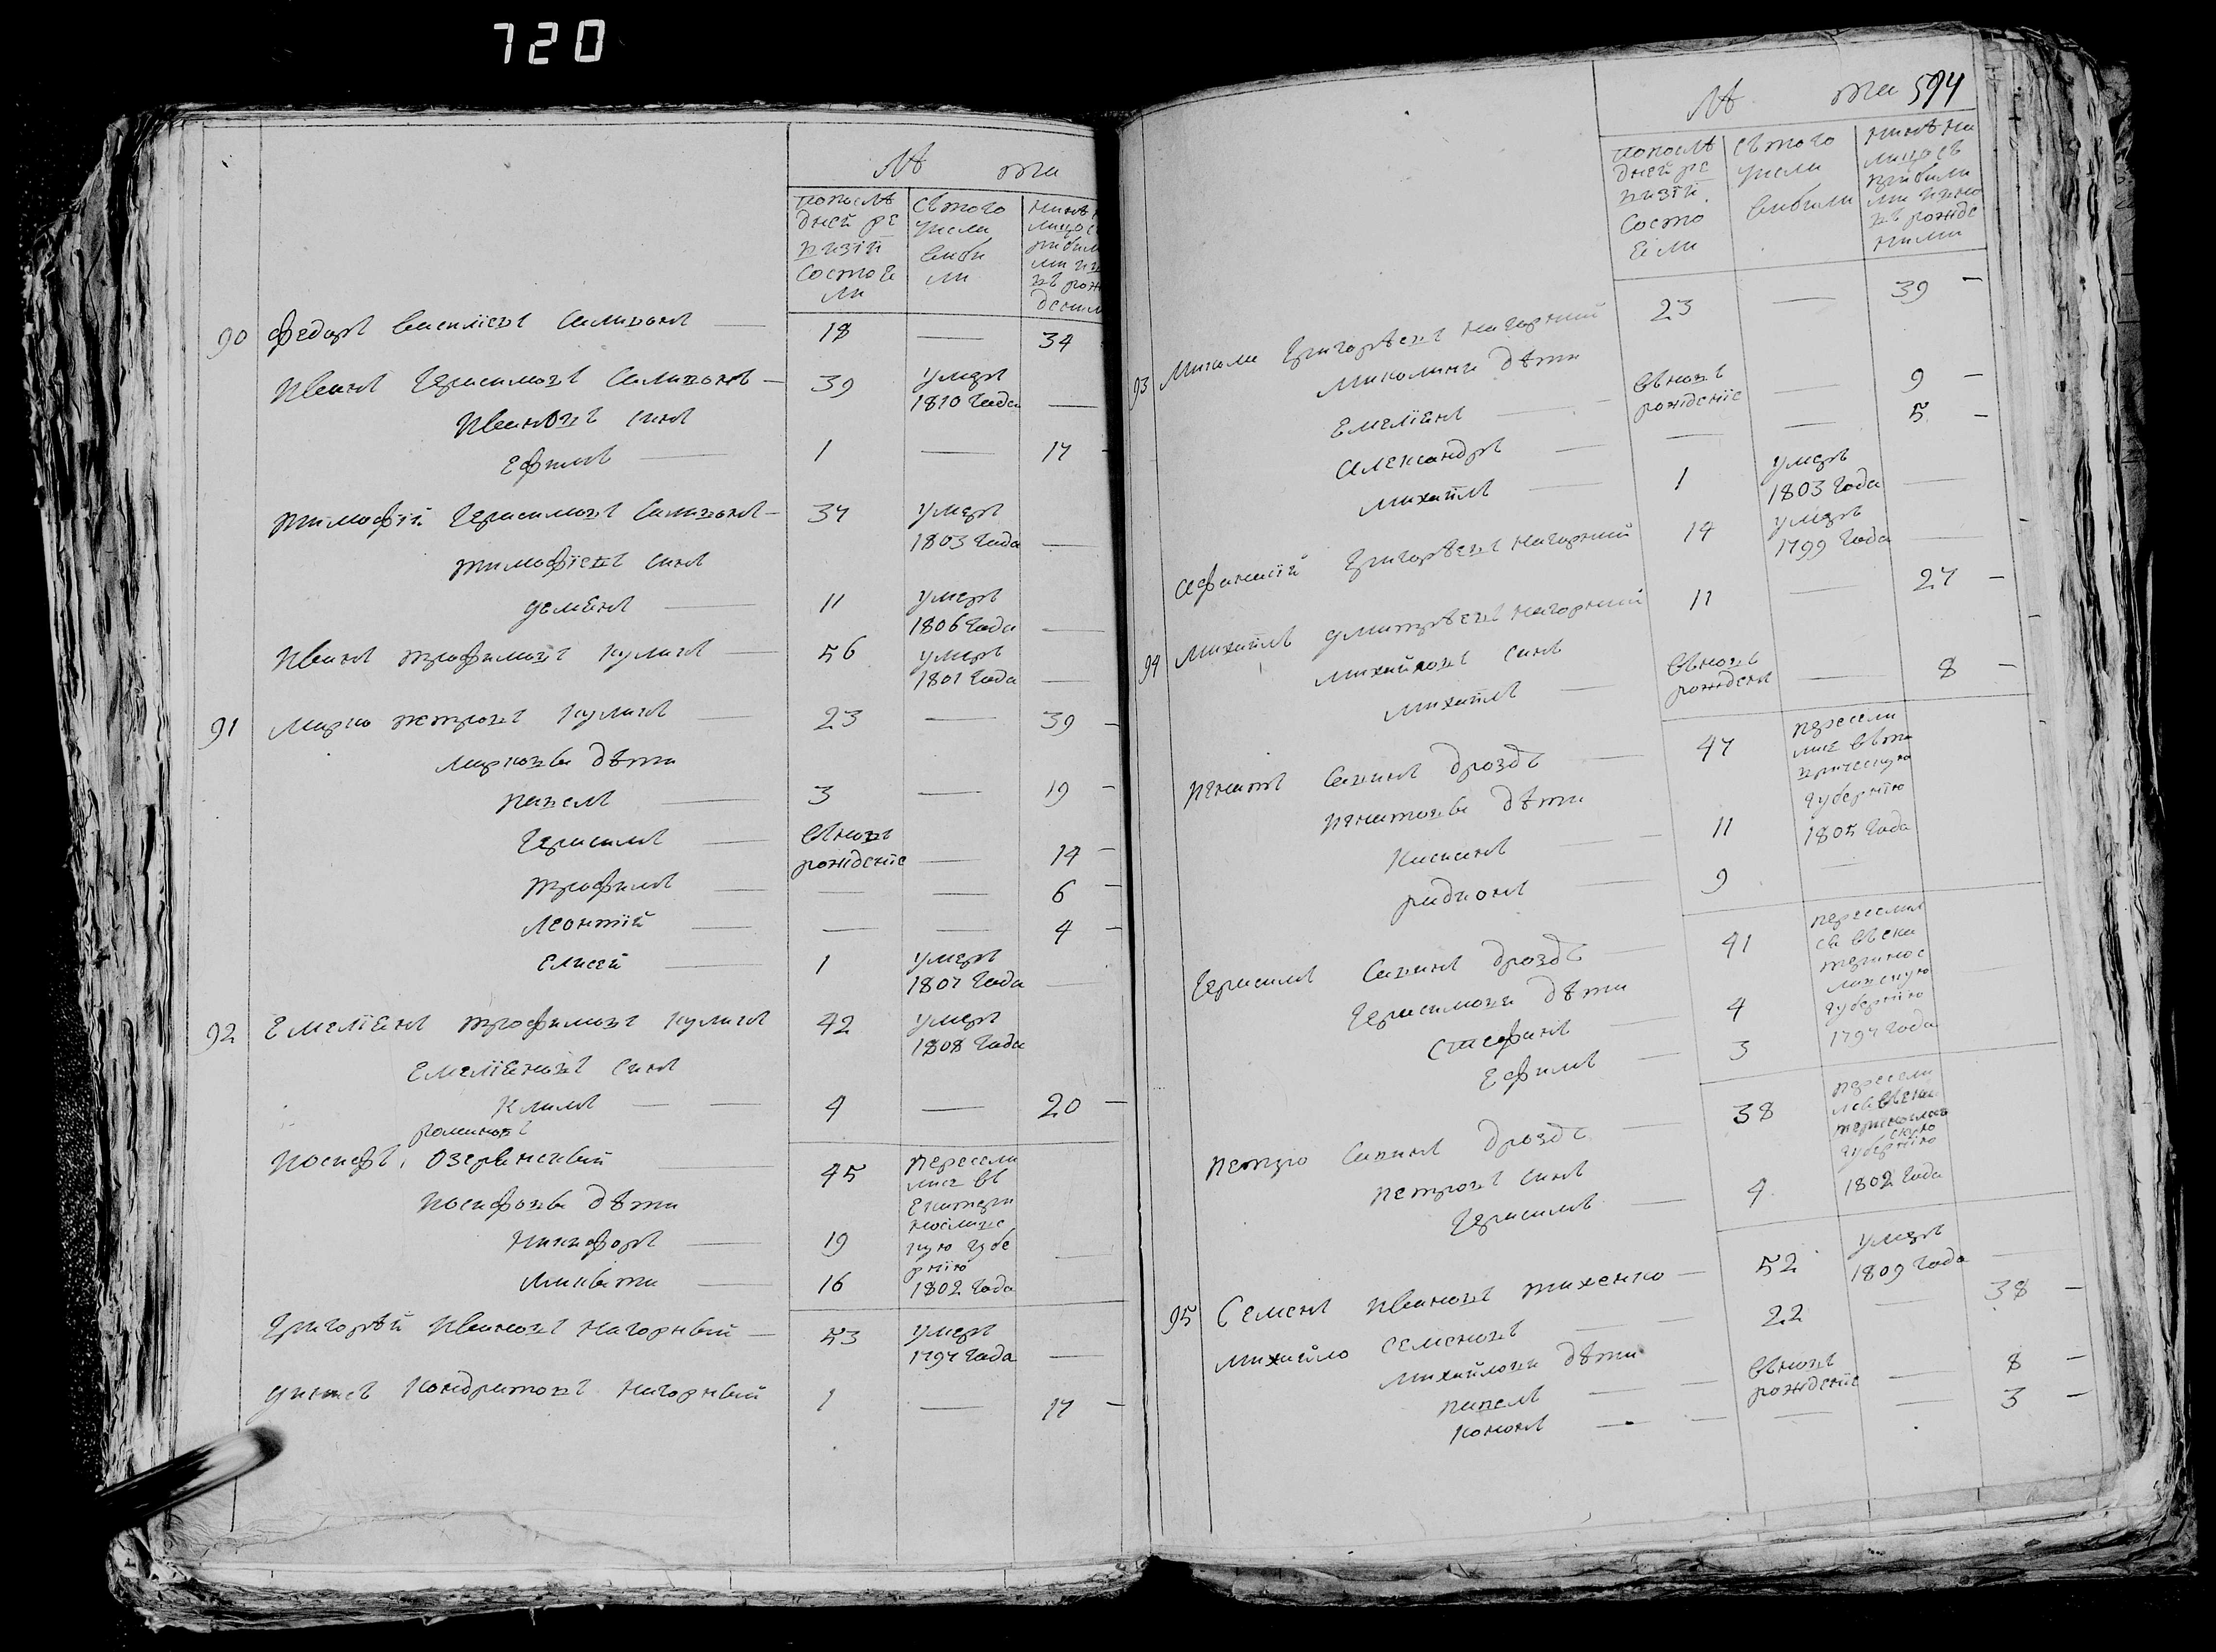 720
Лѣ та
попослѣ дней ре визіи состоя ли
съ того числа выбы ли
нынѣ
90 Федоръ Василіевъ 18 — 34
Иванъ Герасимовъ — 39 умеръ 1810 года —
Ивановъ сынъ
Ефимъ — 1 — 17
Тимофей Герасимовъ — 37 умеръ 1803 года —
Тимофіевъ сынъ
Демянъ — 11 умеръ 1806 года —
Иванъ Трофимовъ Куликъ — 56 умеръ 1801 года —
91 Марко Петровъ Куликъ 23 — 39 —
Марковы дѣти
Павелъ — 3 — 19 —
Герасимъ — вновь рожденіе — 14 —
Трофимъ — — — 6 —
Леонтій — — — 4 —
Елисей — 1 умеръ 1807 года —
92 Емеліянъ Трофимовъ Куликъ 42 умеръ 1808 года
Емеліяновъ сынъ
Климъ — — 4 — 20 —
Романовъ
Иосифъ Озерянскый 45 пересели лися въ Екатери нославс кую губе рнію 1802 года
Иосифовы дѣти
Никифоръ — 19
Микита — 16 —
Григорѣй Ивановъ Нагорный — 53 умеръ 1797 года —
Кондратовъ Нагорный 1 — 17 —
Лѣ та 594
попослѣ дней ре визіи состо яли
съ того числа выбыли
нынѣ на лицо съ прибыли ми и вно вь рожде нными
93 Микола Григорѣевъ Нагорный 23 — 39 —
Миколины дѣти
Емеліянъ — вновь рожденіе — 9 —
Александръ — — — 5 —
Михайлъ — 1 умеръ 1803 года —
Афанасій Григорѣевъ Нагорный 14 умеръ 1799 года —
94 Михайлъ Дмитрѣевъ Нагорный 11 — 27 —
Михайловъ сынъ
Михайлъ — вновь рожденъ — 8 —
Игнатъ Савинъ Дроздъ — 47 пересели лися въ та врическую губернію 1805 года
Игнатовы дѣти
Касянъ — 11
Радионъ — 9
Герасимъ Савинъ Дроздъ — 41 переселил ся въ ека теринос лавскую губернію 1797 года
Герасимовы дѣти
Стефанъ — 4
Ефимъ — 3
Петро Савинъ Дроздъ — 38 пересели лся въ ека теринослав скую губернію 1802 года
Петровъ сынъ
Герасимъ — 4
95 Семенъ Ивановъ Тихенко — 52 умеръ 1809 года —
Михайло Семеновъ — 22 — 38 —
Михайловы дѣти
Павелъ — — вновь рожденіе — 8 —
Кононъ — — — — 3 —